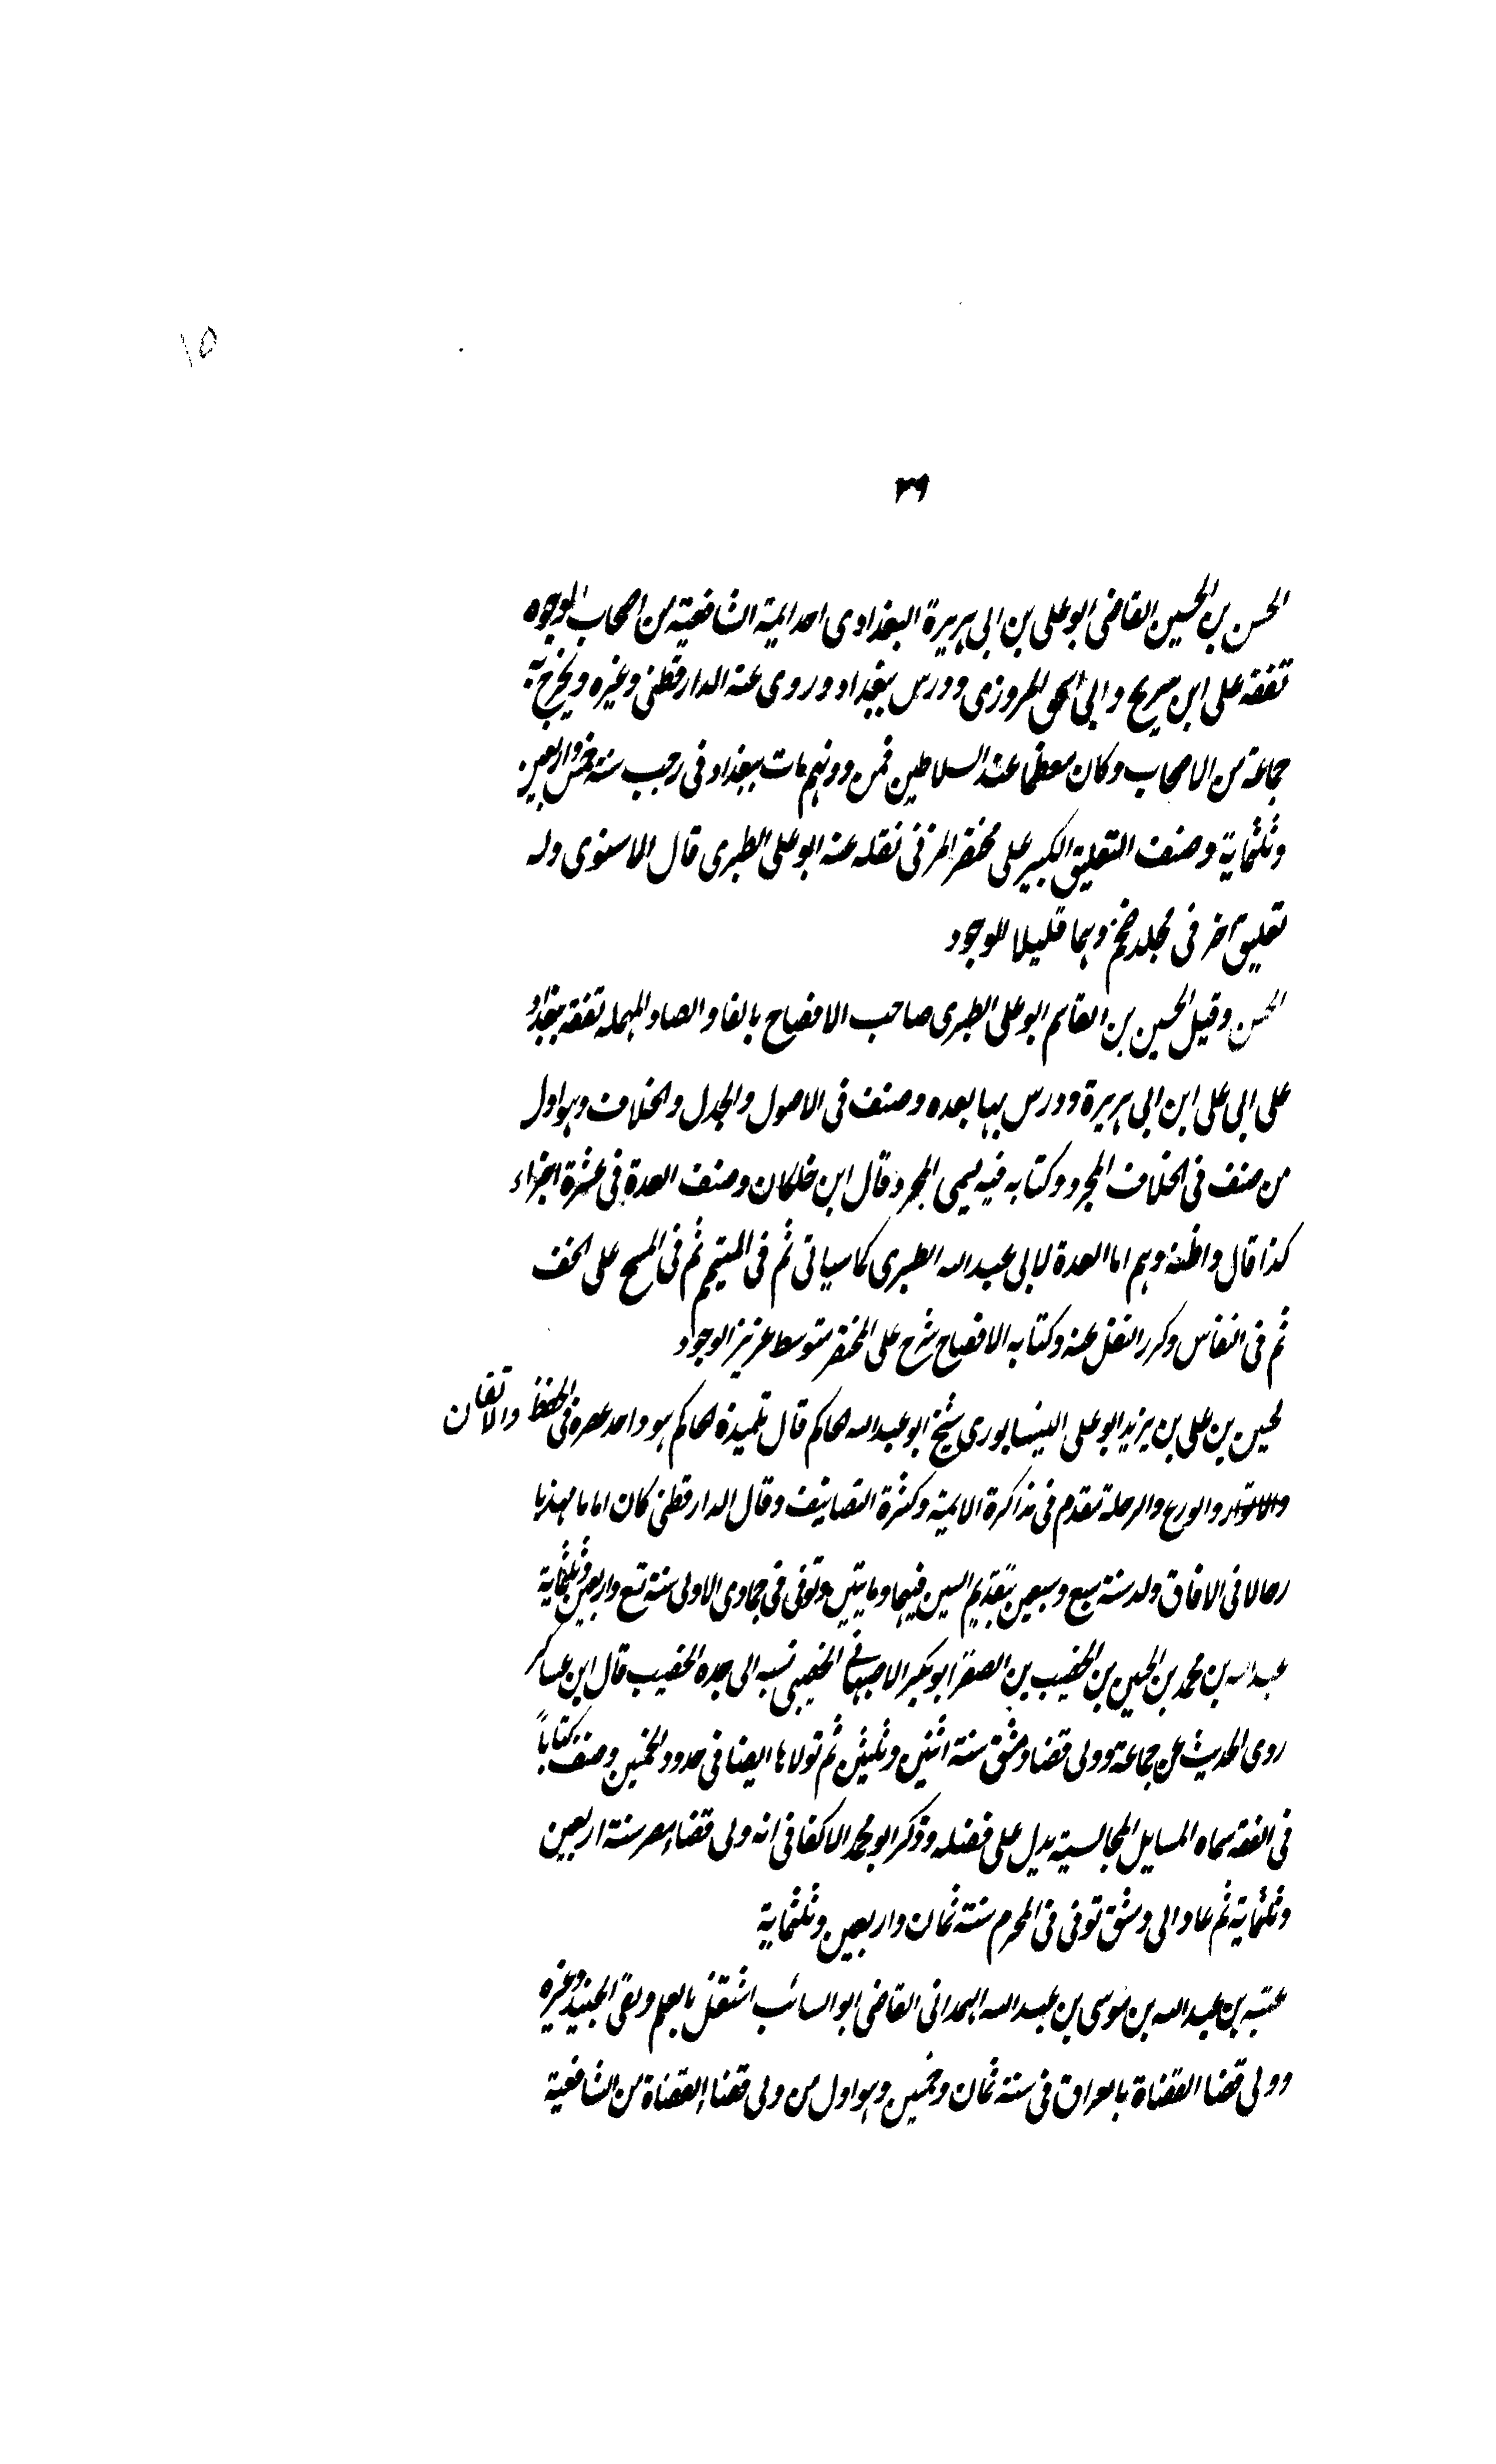 ١٥
٣٩
الحسن بن الحسين القاضى ابو على بن ابى هريرة البغدادى احد ايمة الشافعية من اصحاب الوجوه
تفقه على ابن سريج وابى اسحق المروزى ودرس ببغداد وروى عنه الدارقطنى وغيره وتخرج به
جماعة من الاصحاب وكان معظما عند السلاطين فمن دونهم مات ببغداد فى رجب سنة خمس واربعين
وثلثماية وصنف التعليق الكبير على مختصر المزنى نقله عنه ابو على الطبرى قال الاسنوى وله
تعليق آخر فى مجلد ضخم وهما قليلا الوجود
الحسن وقيل الحسين بن القاسم ابو على الطبرى صاحب الافصاح بالفا والصاد المهمله تفقه ببغداد
على ابى على ابن ابى هريرة ودرس بها بعده وصنف فى الاصول والجدل والخلاف وهو اول
من صنف فى الخلاف المجرد وكتابه فيه يسمى المجرد قال ابن خلكان وصنف العدة فى عشرة اجزاء
كذا قال واظنه وهم اما العدة لابى عبد الله الطبرى كما سياتى ثم فى التيمم ثم فى المسح على الخف
ثم فى النفاس وكرر النقل عنه وكتابه الافصاح شرح على المختصر متوسط عزيز الوجود
لحسين بن على بن يزيد ابو على النيسابورى شيخ ابو عبد الله الحاكم قال تلميذه الحاكم هو واحد عصره فى الحفظ والاتقان
والورع والرحلة تقدم فى مذاكرة الايمة وكثرة التصانيف وقال الدارقطنى كان اماما مهذبا
رحالا فى الافاق ولد سنة سبع وسبعين بتقديم السين فيهما ومايتين وتوفى فى جمادى الاولى سنة تسع واربعين وثلثماية
عبد الله بن محمد بن الحسين بن الخصيب بن الصقر ابو بكر الاصبهانى الخصيبى نسبه الى جده الخصيب قال ابن عساكر
روى الحديث عن جماعة وولى قضا دمشق سنة اثنين وثلثين ثم تولاها ايضا فى حدود الخمسين وصنف كتاباً
فى الفقه سماه المسايل المجالسية يدل على فضله وذكر ابو محمد الاكفانى انه ولى قضاء مصر سنة اربعين
وثلثماية ثم عاد الى دمشق توفى فى المحرم سنة ثمان واربعين وثلثماية
عتبه بن عبيد الله بن موسى بن عبيد الله الهمدانى القاضى ابو السائب اشتغل بالعلم ولقى الجنيد وغيره
وولى قضا القضاة بالعراق فى سنة ثمان وخمسين وهو اول من ولى قضاء القضاة من الشافعية